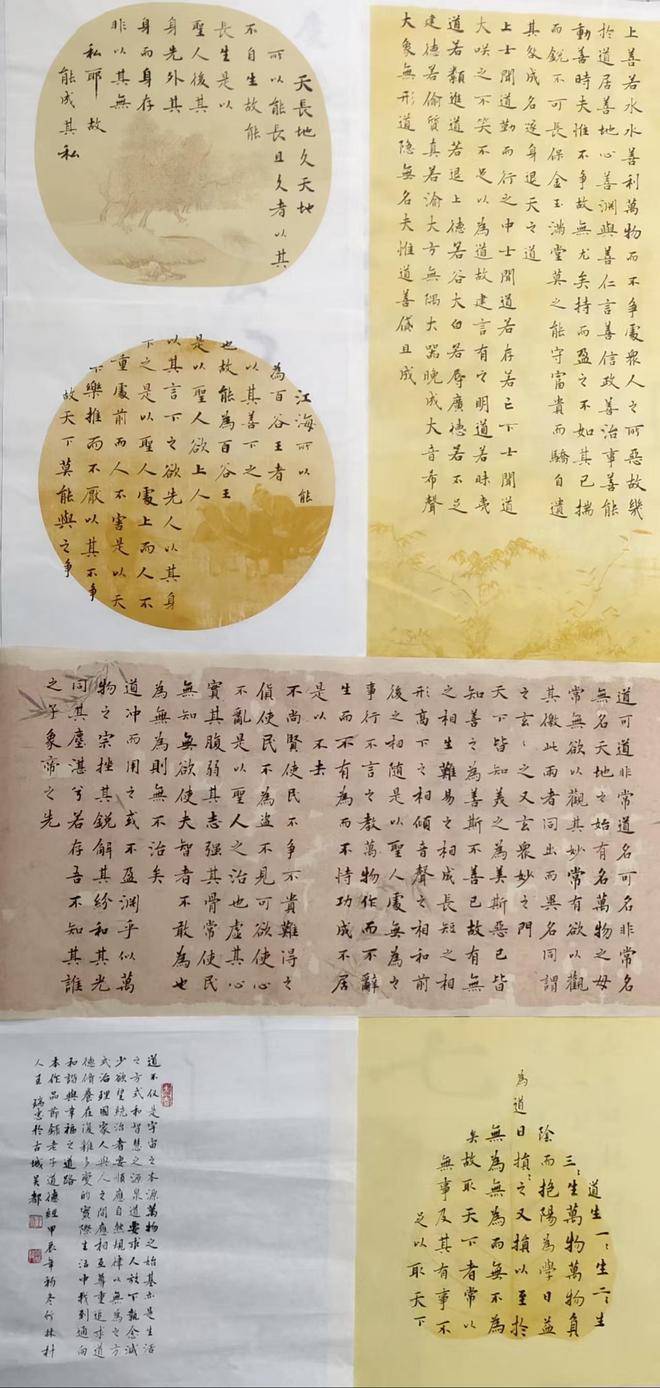 上善若水水善利萬物而不爭處衆人之所惡故幾
於道居善地心善淵與善仁言善信政善治事善能
動善時夫惟不爭故無尤矣持而盈之不如其已揣
而銳不可長保金玉滿堂莫之能守富貴而驕自遺
其咎成名遂身退天之道
上士聞道勤而行之中士聞道若存若亡下士聞道
大咲之不笑不足以為道故建言有之明道若昧夷
道若纇進道若退上德若谷大白若辱廣德若不足
建德若偷質真若渝大方無隅大器晚成大音希聲
大象無形道隐無名夫惟道善貸且成
天長地久天地
可以能長且久者以其
不自生故能
長生是以
聖人後其
身先外其
身而身存
非以其無
私耶故
能成其私
江海所以能
為百谷王者
以其善下之
也故能為百谷王
是以聖人欲上人
以其言下之欲先人以其身
下之是以聖人處上而人不
重處前而人不害是以天
下樂推而不厭以其不爭
故天下莫能與之爭
道可道非常道名可名非常名
無名天地之始有名萬物之母
常無欲以觀其妙常有欲以觀
其徼此兩者同出而異名同謂
之玄〻之又玄衆妙之門
天下皆知美之為美斯惡已皆
知善之為善斯不善已故有無
之相生難易之相成長短之相
形高下之相傾音聲之相和前
後之相随是以聖人處無為之
事行不言之教萬物作而不辭
生而不有為而不恃功成不居
是以不去
不尚賢使民不爭不貴難得之
貨使民不為盗不見可欲使心
不亂是以聖人之治也虚其心
實其腹弱其志强其骨常使民
無知無欲使夫智者不敢為也
為無為則無不治矣
道冲而用之或不盈淵乎似萬
物之宗挫其銳解其紛和其光
同其塵湛兮若存吾不知其誰
之子象帝之先
道生一〻生二〻生
三〻生萬物萬物負
陰而抱陽為學日益
為道日損〻之又損以至於
無為無為而無不為
矣故取天下者常以
無事及其有事不
足以取天下
道不仅是宇宙之本源萬物之始基亦是生活
之方式和智慧之源泉道要求人放下執念减
少欲望統治者要順應自然規律以無為之方
式治理國家人與人之間應相互尊重追求道
德脩養在復雜多變的實際生活中找到通向
和諧與幸福之道路
本作品節錄老子道德經甲辰年初冬竹林村
人王瑞忠於古城吴都